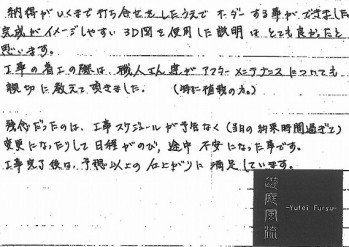 納得がいくまで打ち合せをしたうえでオーダーする事ができました
完成がイメージしやすい3D図を使用した説明はとても良かったと
思います。
工事の着工の際は、職人さん達がアフターメンテナンスについても
親切に教えて頂きました。（特に植物の方。）
残念だったのは、工事スケジュールが予告なく（当日の約束時間過ぎて）
変更になったりして日程がのび、途中不安になった事です。
工事完了後は、予想以上の仕上がりに満足しています。
遊庭風流
-Yutei Furyu-